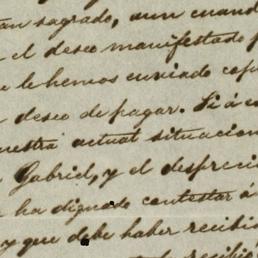 tan sagrado, aun cuand
n el deseo manifestado p
e le hemos enviado cop
n deseo de pagar. Si á e
uestra actual situacion
Gabriel, y el despreci
e ha dignado contestar á
y que debe haber recibi
recibió